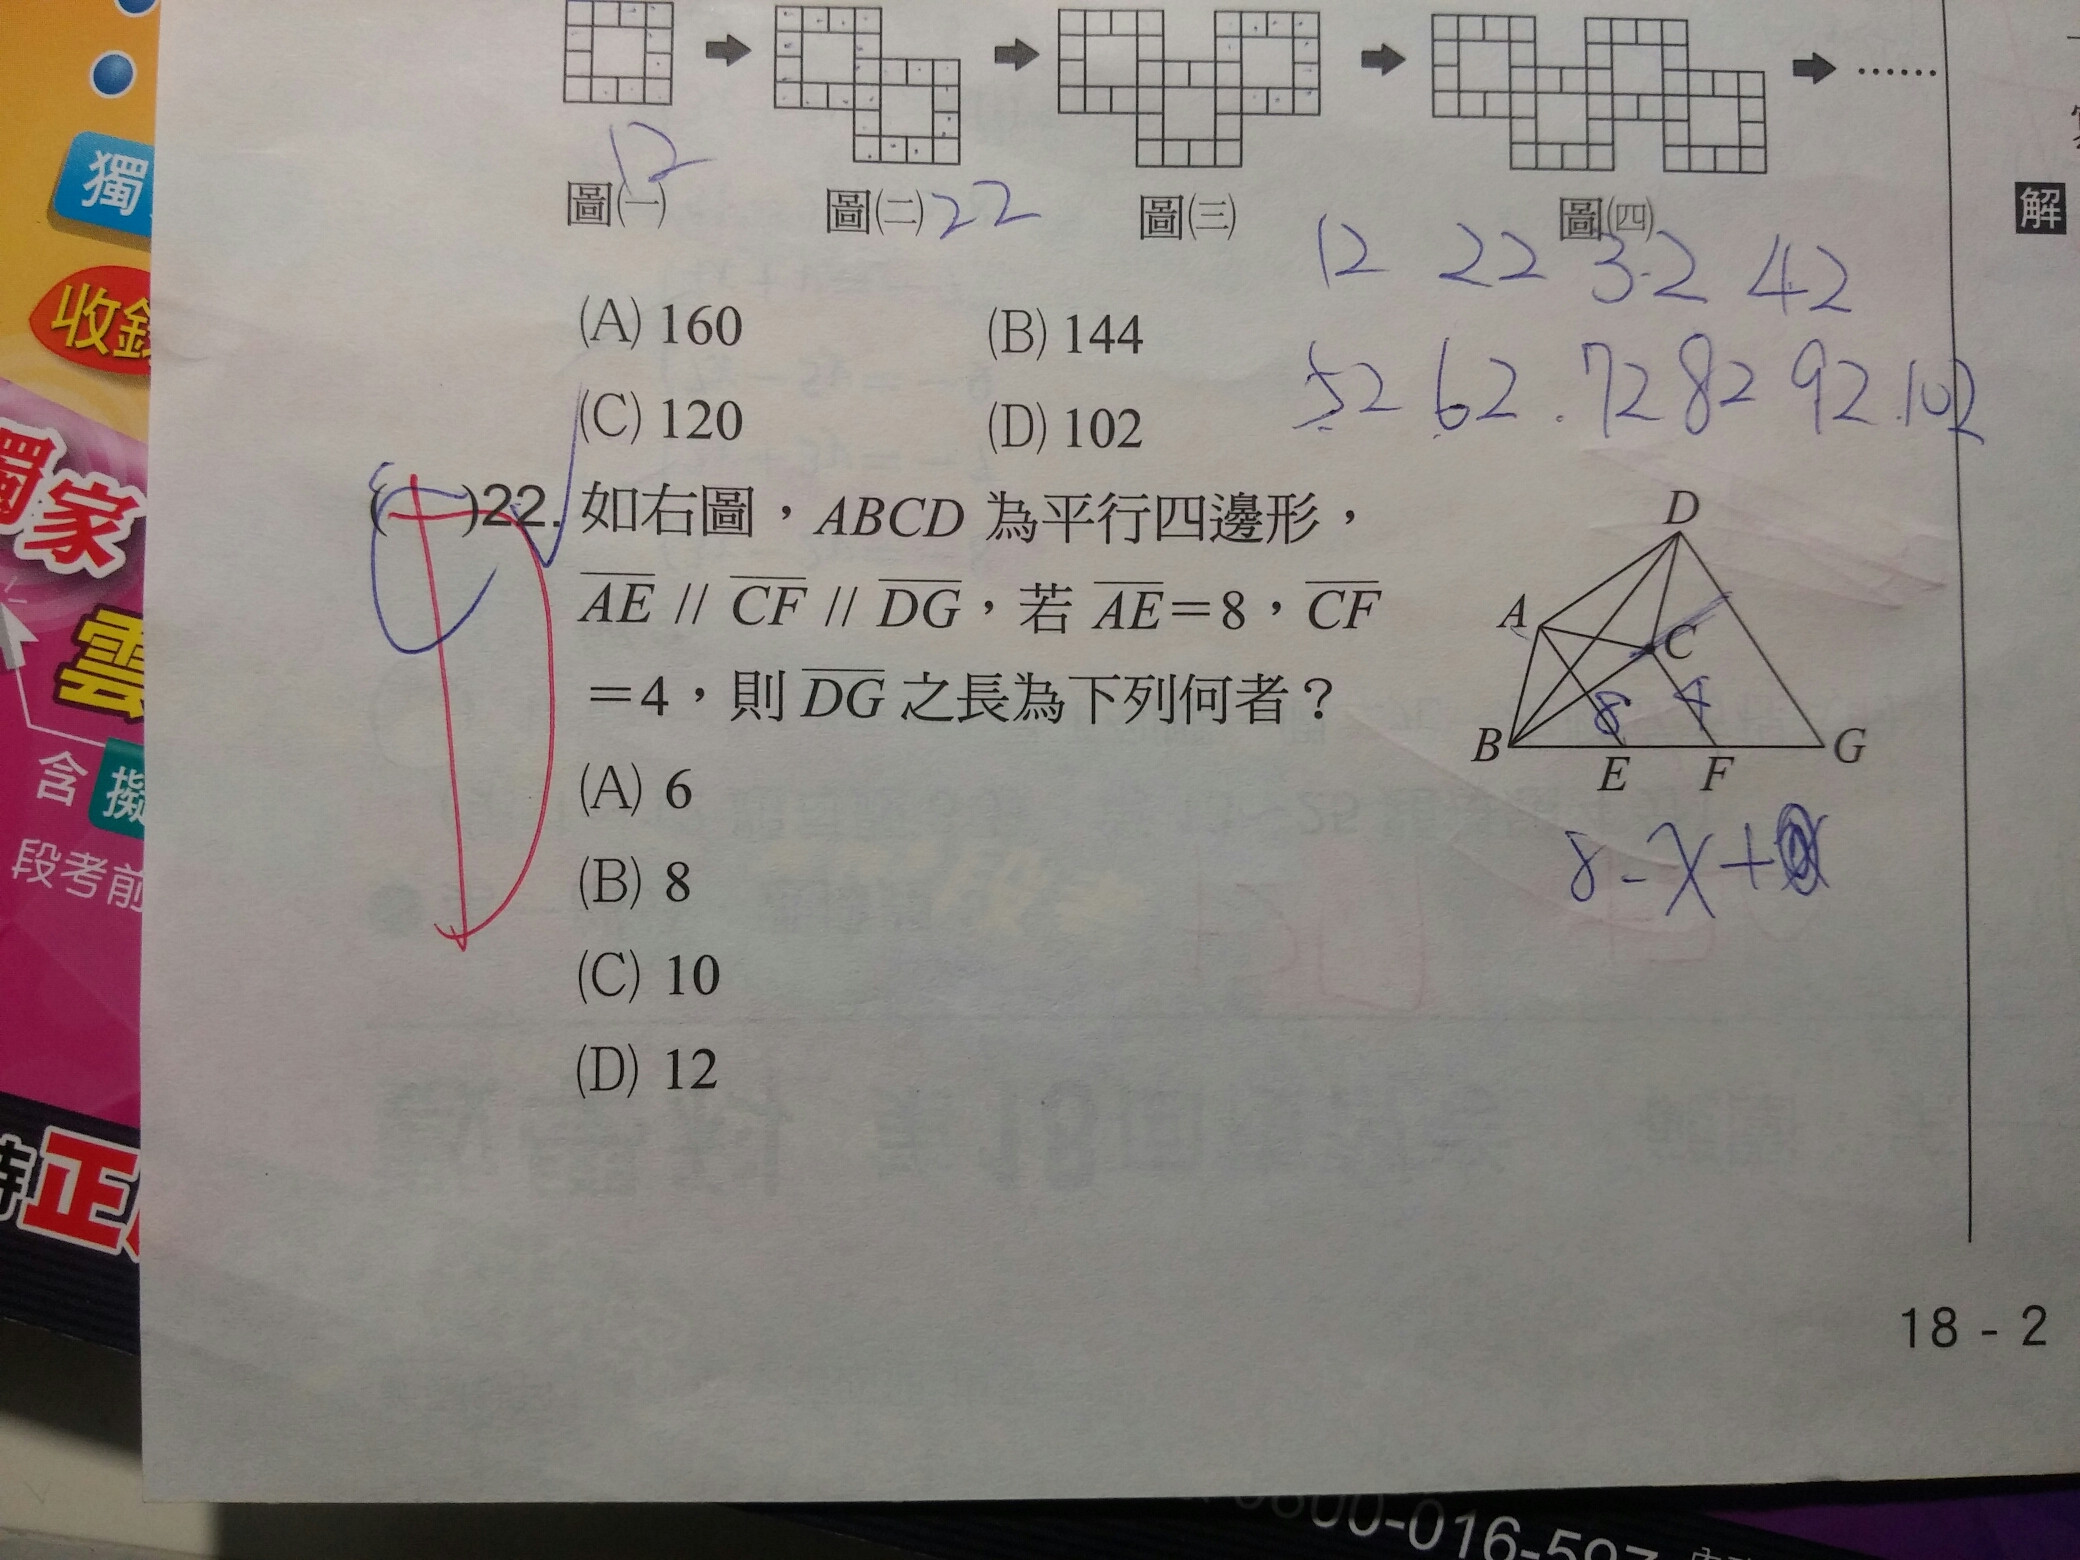 圖(一) 圖(二) 圖(三) 圖(四)
12
22
12 22 32 42
52 62 72 82 92 102
(A) 160 (B) 144
(C) 120 (D) 102
( )22. 如右圖，ABCD 為平行四邊形，
AE // CF // DG，若 AE=8，CF
=4，則 DG 之長為下列何者？
(A) 6
(B) 8
(C) 10
(D) 12
D
A
C
8 4
B G
E F
8-x+
18-2
解
獨
收錄
獨家
雲
含 擬
段考前
正
0600-016-597